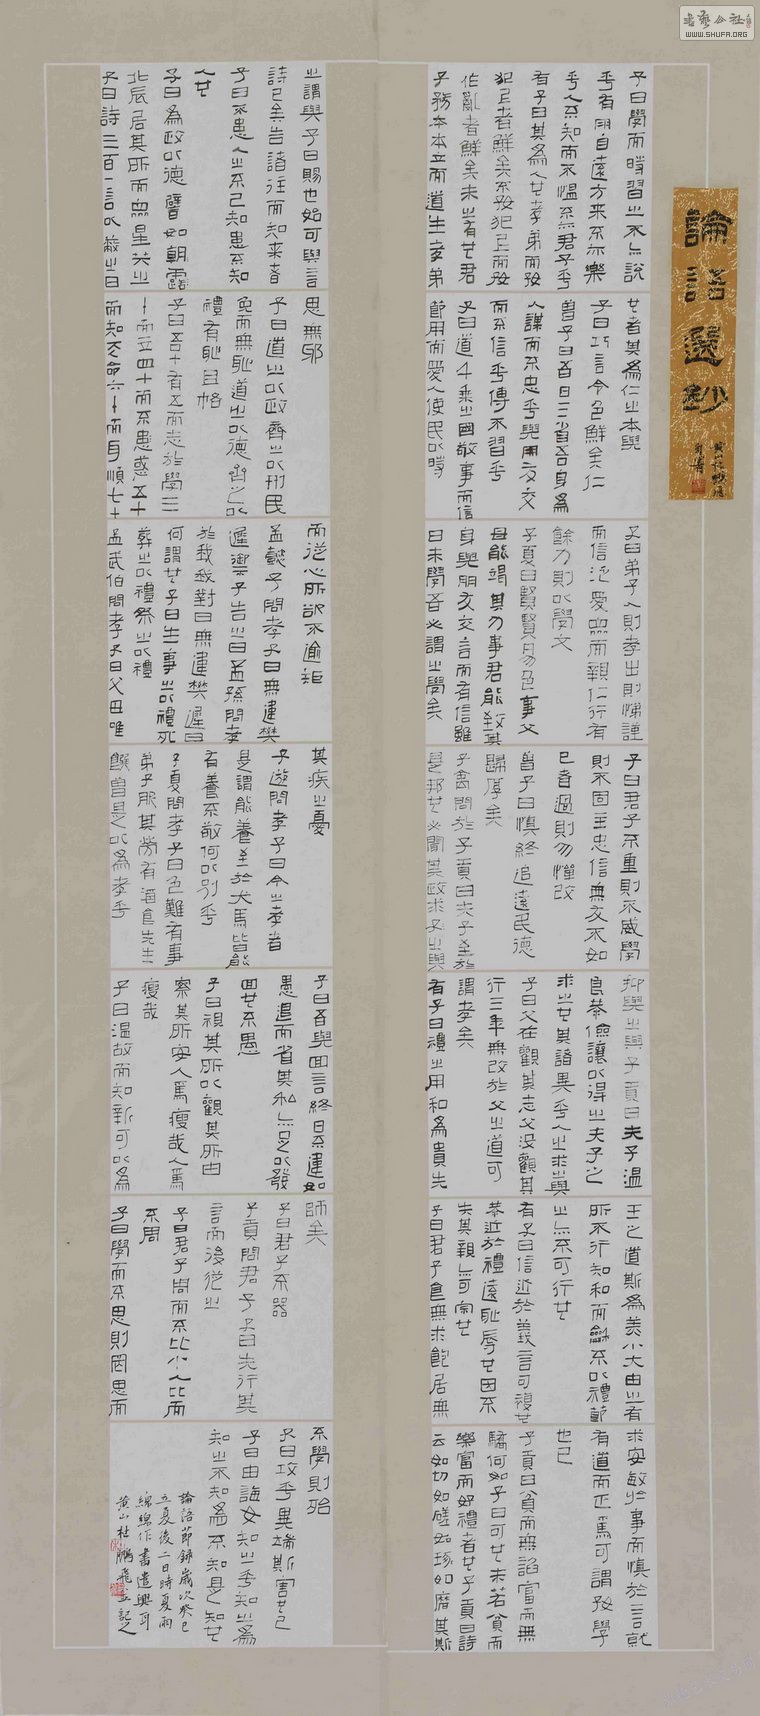 論語選鈔
黃山杜鵬飛
自署
子曰學而時習之不亦說
乎有朋自遠方来不亦樂
乎人不知而不慍不亦君子乎
有子曰其為人也孝弟而好
犯上者鮮矣不好犯上而好
作亂者鮮矣未之有也君
子務本本立而道生孝弟
也者其為仁之本與
子曰巧言令色鮮矣仁
曾子曰吾日三省吾身為
人謀而不忠乎與朋友交
而不信乎傳不習乎
子曰道千乘之國敬事而信
節用而愛人使民以時
子曰弟子入則孝出則悌謹
而信汎愛眾而親仁行有
餘力則以學文
子夏曰賢賢易色事父
母能竭其力事君能致其
身與朋友交言而有信雖
曰未學吾必謂之學矣
子曰君子不重則不威學
則不固主忠信無友不如
己者過則勿憚改
曾子曰慎終追遠民德
歸厚矣
子禽問於子貢曰夫子至於
是邦也必聞其政求子之與
抑與之與子貢曰夫子溫
良恭儉讓以得之夫子之
求之也其諸異乎人之求之與
子曰父在觀其志父沒觀其
行三年無改於父之道可
謂孝矣
有子曰禮之用和為貴先
王之道斯為美小大由之有
所不行知和而龢不以禮節
之亦不可行也
有子曰信近於義言可復也
恭近於禮遠恥辱也因不
失其親亦可宗也
子曰君子食無求飽居無
求安敏於事而慎於言就
有道而正焉可謂好學
也已
子貢曰貧而無諂富而無
驕何如子曰可也未若貧而
樂富而好禮者也子貢曰詩
云如切如磋如琢如磨其斯
之謂與子曰賜也始可與言
詩已矣告諸往而知来者
子曰不患人之不己知患不知
人也
子曰為政以德譬如朝露
北辰居其所而眾星共之
子曰詩三百一言以蔽之曰
思無邪
子曰道之以政齊之以刑民
免而無恥道之以德齊之以
禮有恥且格
子曰吾十有五而志於學三
十而立四十而不惑五十
而知天命六十而耳順七十
而從心所欲不逾矩
孟懿子問孝子曰無違樊
遲御子告之曰孟孫問孝
於我我對曰無違樊遲曰
何謂也子曰生事之以禮死
葬之以禮祭之以禮
孟武伯問孝子曰父母唯
其疾之憂
子遊問孝子曰今之孝者
是謂能養至於犬馬皆能
有養不敬何以別乎
子夏問孝子曰色難有事
弟子服其勞有酒食先生
饌曾是以為孝乎
子曰吾與回言終日不違如
愚退而省其私亦足以發
回也不愚
子曰視其所以觀其所由
察其所安人焉廋哉人焉
廋哉
子曰溫故而知新可以為
師矣
子曰君子不器
子貢問君子子曰先行其
言而後從之
子曰君子周而不比小人比而
不周
子曰學而不思則罔思而
不學則殆
子曰攻乎異端斯害也已
子曰由誨女知之乎知之為
知之不知為不知是知也
論語節錄歲次癸巳
立夏後二日時夏雨
綿綿作書遣興耳
黃山杜鵬飛並記之
書藝公社
WWW.SHUFA.ORG